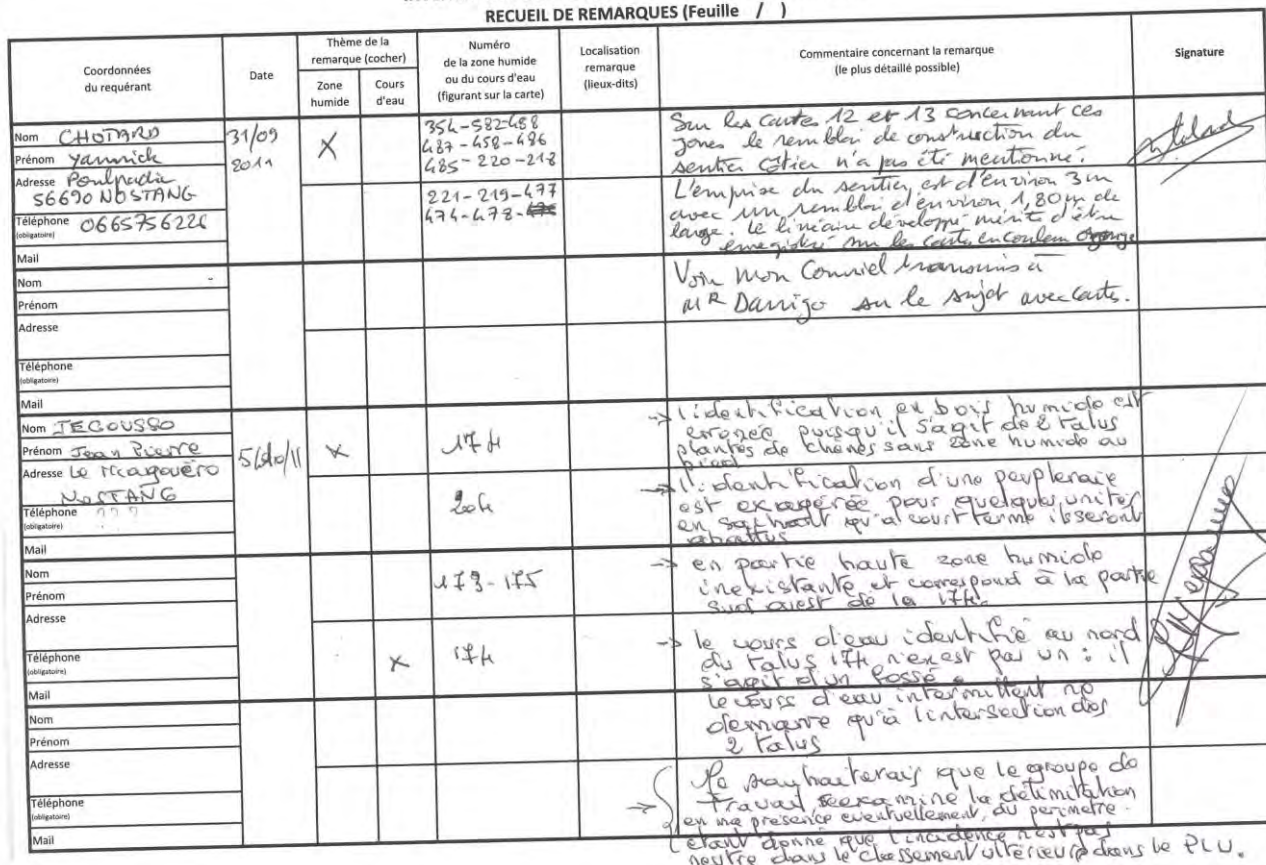 RECUEIL DE REMARQUES (Feuille / )
Coordonnées
du requérant
Date
Thème de la
remarque (cocher)
Zone
humide
Cours
d'eau
Numéro
de la zone humide
ou du cours d'eau
(figurant sur la carte)
Localisation
remarque
(lieux-dits)
Commentaire concernant la remarque
(le plus détaillé possible)
Signature
Nom CHOTARD
Prénom Yannick
Adresse Poulpadic
56690 NOSTANG
Téléphone 0665756226
(obligatoire)
Mail
31/09
2011
X
354-582-488
487-458-486
485-220-218
221-219-477
474-478-
Sur les cartes 12 et 13 concernant ces
zones le remblai de construction du
sentier côtier n'a pas été mentionné.
L'emprise du sentier est d'environ 3m
avec un remblai d'environ 1,80m de
large. Le linéaire développé mérite d'être
enregistré sur les cartes en couleur orange
Nom
Prénom
Adresse
Téléphone
(obligatoire)
Mail
Voir mon Courriel transmis à
MR Darrigo sur le sujet avec cartes.
Nom JEGOUSSO
Prénom Jean Pierre
Adresse Le Magouëro
NOSTANG
Téléphone ???
(obligatoire)
Mail
X
174
→ l'identification en bois humide est
erronée puisqu'il s'agit de 2 talus
plantés de chênes sans zone humide au
pied
204
→ l'identification d'une peupleraie
est exagérée pour quelques unités
en sachant qu'à court terme ils seront
abattus
Nom
Prénom
Adresse
Téléphone
(obligatoire)
Mail
173-175
→ en partie haute zone humide
inexistante et correspond à la partie
sud ouest de la 174.
X
174
→ le cours d'eau identifié au nord
du talus 174 n'en est pas un : il
s'agit d'un fossé.
le cours d'eau intermittent ne
demarre qu'à l'intersection des
2 talus
Nom
Prénom
Adresse
Téléphone
(obligatoire)
Mail
→ Je souhaiterais que le groupe de
travail réexamine la délimitation
en ma présence eventuellement, du perimetre.
étant donné que l'incidence n'est pas
neutre dans le classement ultérieur dans le PLU.